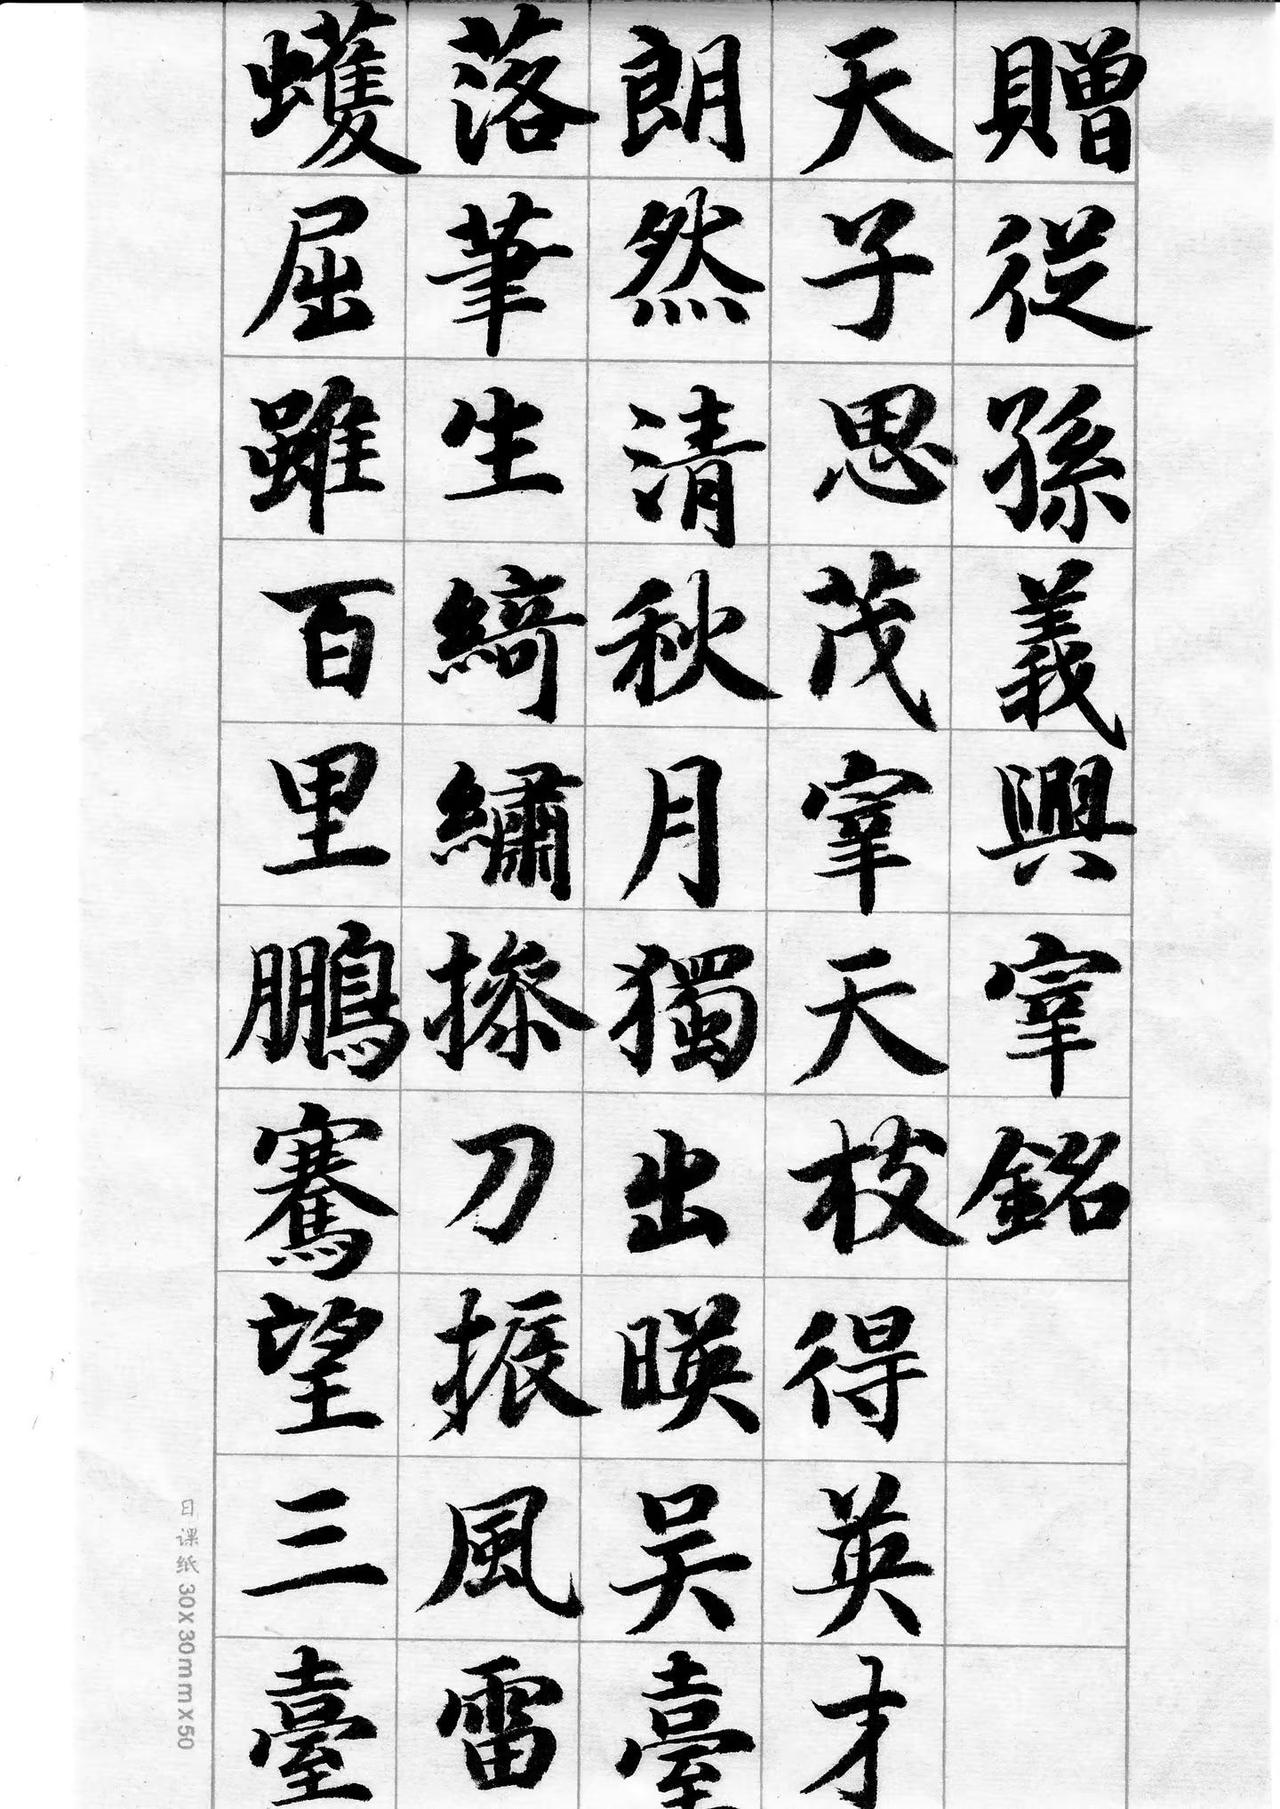 贈從孫義興宰銘
天子思茂宰天枝得英才
朗然清秋月獨出暎吳臺
落筆生綺繡操刀振風雷
蠖屈雖百里鵬騫望三臺
日课纸 30x30mmx50